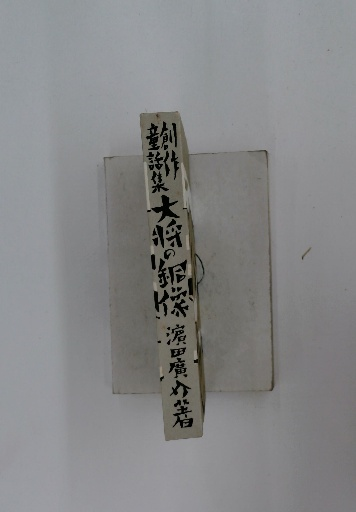 創作
童話集
大将の銅像
濱田廣介著